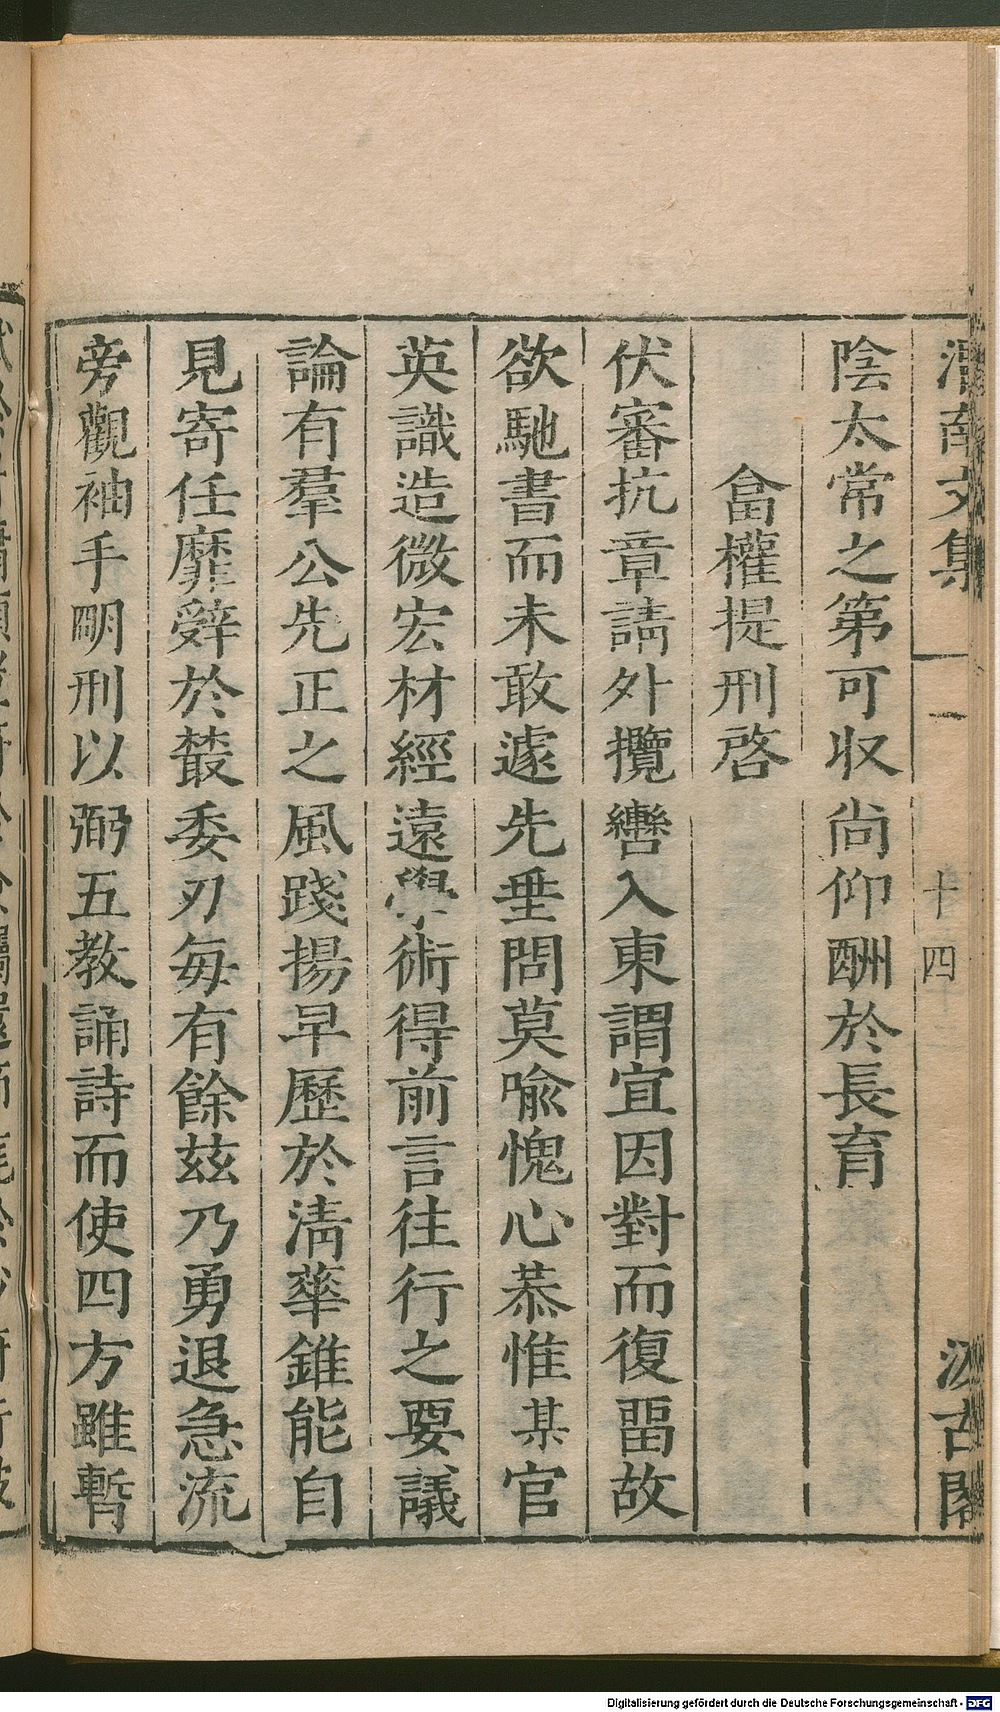 渭南文集 一 十四 汲古閣
陰太常之第可収尚仰酬於長育
畣權提刑啓
伏審抗章請外攬轡入東謂宜因對而復畱故
欲馳書而未敢遽先垂問莫喩愧心恭惟某官
英識造微宏材經遠學術得前言往行之要議
論有羣公先正之風踐揚早歷於淸華錐能自
見寄任靡辭於䕺委刃每有餘茲乃勇退急流
旁觀袖手朙刑以弼五教誦詩而使四方雖暫
Digitalisierung gefördert durch die Deutsche Forschungsgemeinschaft - DFG